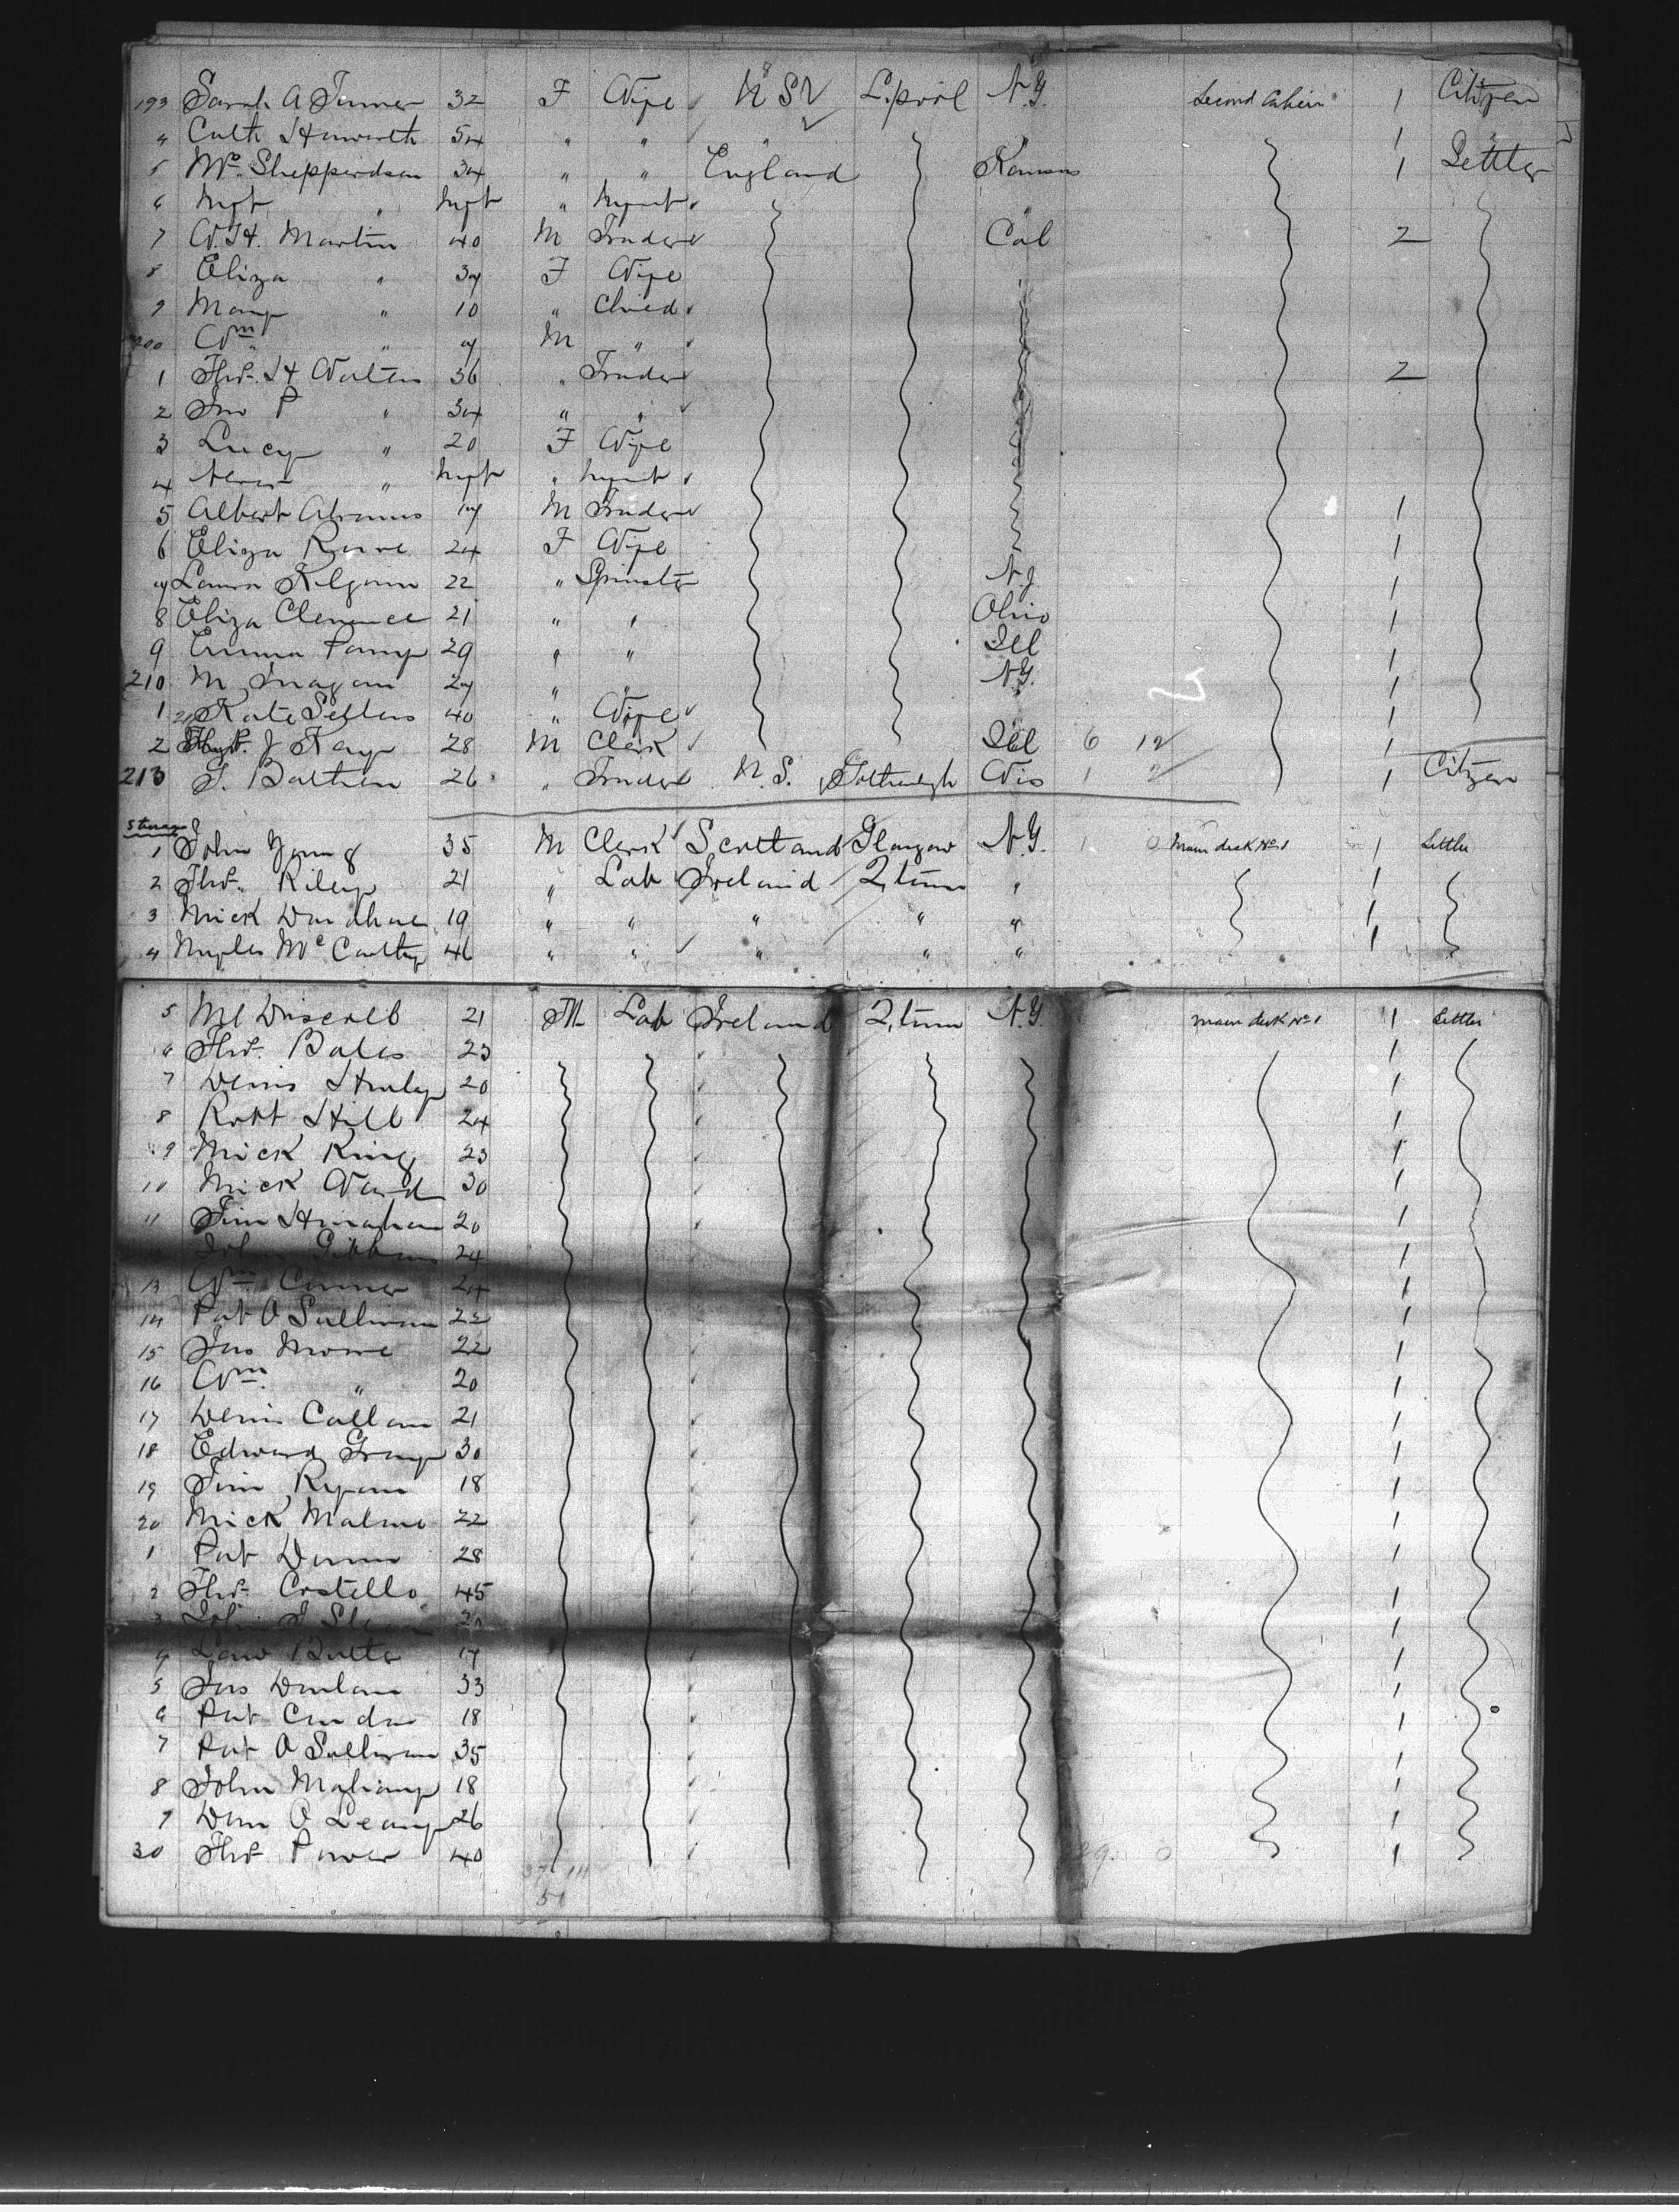 193 Sarah A Turner 32 F Wife U S L.pool N.Y. Second Cabin 1 Citizen
4 Cath Haworth 54 " " " " 1 "
5 Mrs Shepperdson 34 " " England Kansas 1 Settler
6 Inft " Inft " Infant "
7 W.H. Martin 40 M Trader Cal 2
8 Eliza " 34 F Wife "
9 Mary " 10 " Child
200 Wm " 7 M "
1 Thos. H Walters 36 " Trader 2
2 Jno P " 34 " "
3 Lucy " 20 F Wife
4 " Inft " Infant
5 Albert Abrams 17 M Trader 1
6 Eliza Rowe 24 F Wife 1
7 Laura Kilgour 22 " Spinster N.J. 1
8 Eliza Clemence 21 " " Ohio 1
9 Emma Pamp 29 " " Ill 1
210 M 27 " " N.Y. 1
1 Kate Sellers 40 " Wife " 1
2 J Kay 28 M Clerk Ill 6 12 1
213 26 " Trader U.S. Wis 1 2 1 Citizen
Steerage
1 John Young 35 M Clerk Scotland Glasgow N.Y. 1 0 Main deck No 1 1 Settler
2 Thos. Riley 21 " Lab Ireland Q.town " 1
3 Mick 19 " " " " " 1
4 McCarthy 46 " " " " " 1
5 Ml Driscoll 21 M Lab Ireland Q.town N.Y. Main deck No 1 1 Settler
6 Thos. Bates 23 1
7 Denis 20 1
8 Robt Hill 24 1
9 Mick King 23 1
10 Mick Ward 30 1
11 Jim 20 1
12 John Gibbons 24 1
13 Wm Connor 24 1
14 Pat O Sullivan 22 1
15 Jas 22 1
16 Wm. " 20 1
17 Denis Callam 21 1
18 Edward Gray 30 1
19 Jim Ryan 18 1
20 Mick Malone 22 1
1 Pat Dunn 28 1
2 Thos. Costello 45 1
3 John 20 1
4 Law Butler 17 1
5 Jas 33 1
6 Pat 18 1
7 Pat O Sullivan 35 1
8 John Mahony 18 1
9 O Leary 26 1
30 Thos Power 40 1